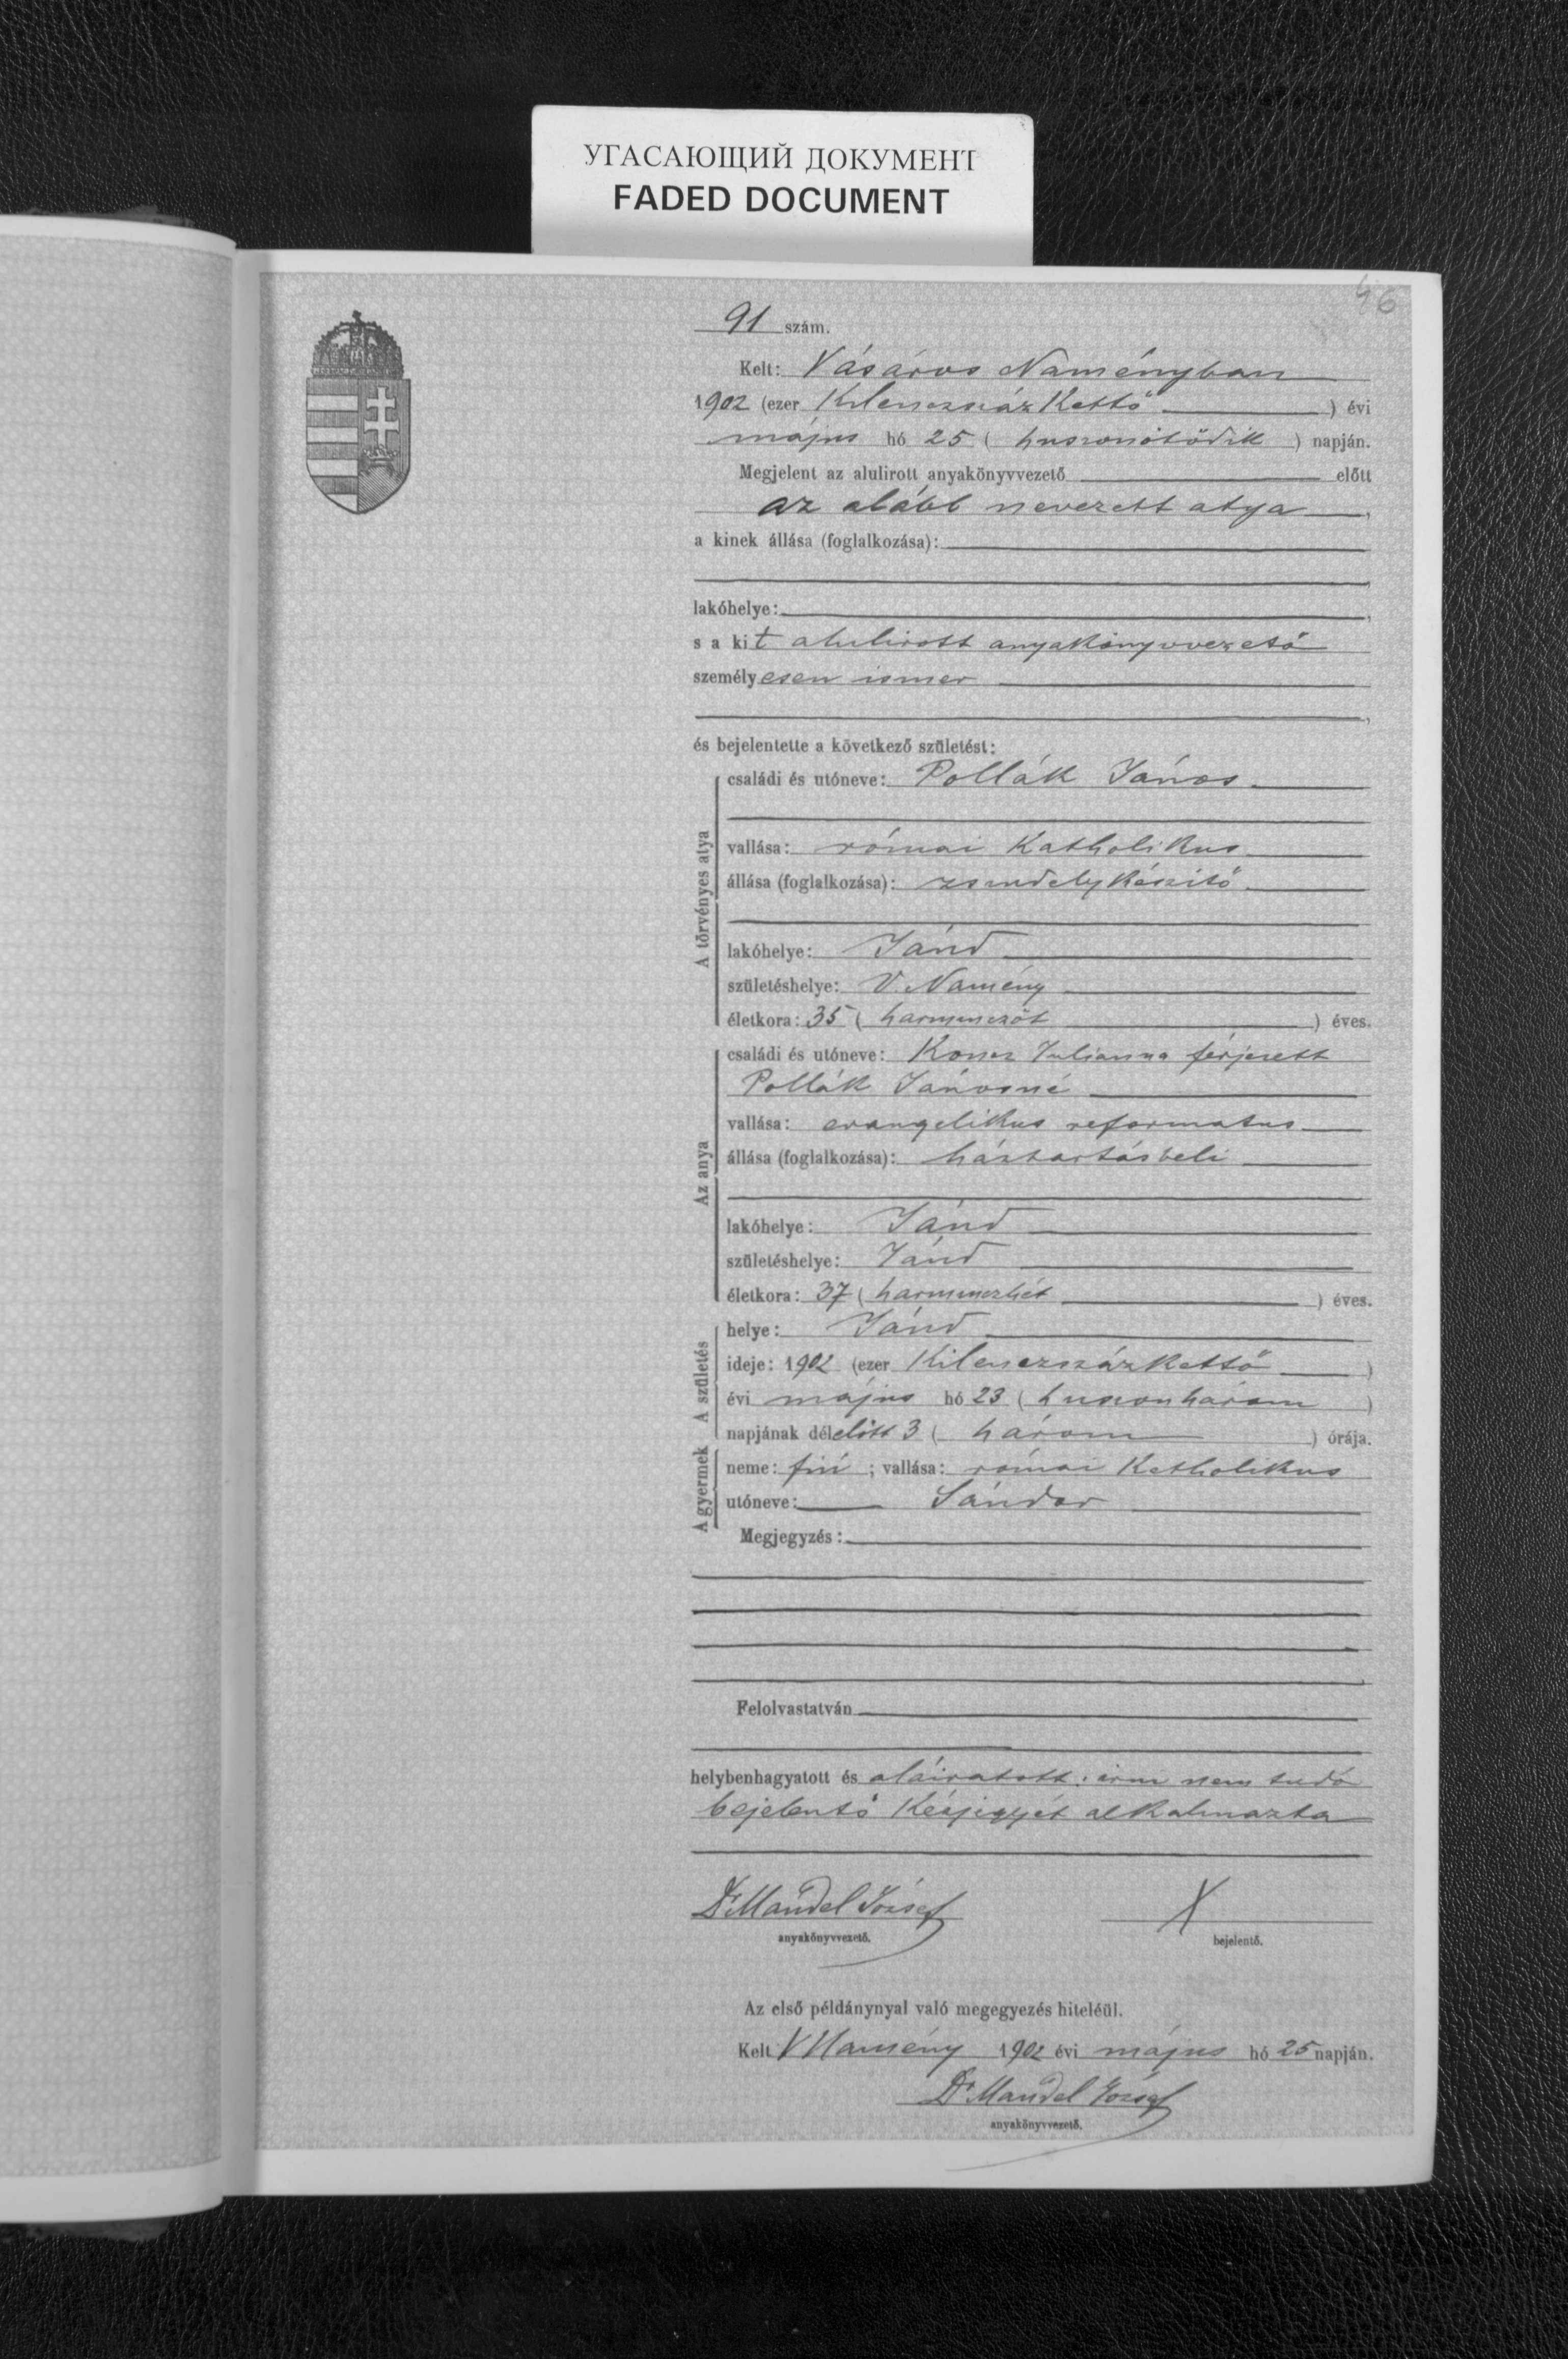 УГАСАЮЩИЙ ДОКУМЕНТ
FADED DOCUMENT
46
91 szám.
Kelt: Vásáros Naményban
1902 (ezer Kilenczszáz Kettő ) évi
május hó 25 ( huszonötödik ) napján.
Megjelent az alulirott anyakönyvvezető előtt
az alább nevezett atya ,
a kinek állása (foglalkozása):
lakóhelye:
s a kit alulirott anyakönyvvezető
személyesen ismer
és bejelentette a következő születést:
A törvényes atya
családi és utóneve: Pollák János
vallása: római Katholikus
állása (foglalkozása): zsendelykészitő
lakóhelye: Jánd
születéshelye: V. Namény
életkora: 35 ( harminczöt ) éves.
Az anya
családi és utóneve: Koncz Julianna férjezett
Pollák Jánosné
vallása: evangelikus reformatus
állása (foglalkozása): háztartásbeli
lakóhelye: Jánd
születéshelye: Jánd
életkora: 37 ( harminczhét ) éves.
A születés
helye: Jánd
ideje: 1902 (ezer Kilenczszázkettő )
évi május hó 23 ( huszonhárom )
napjának délelőtt 3 ( három ) órája.
A gyermek
neme: fiú ; vallása: római Katholikus
utóneve: Sándor
Megjegyzés:
Felolvastatván
helybenhagyatott és aláiratott; irni nem tudó
bejelentő Kézjegyét alkalmazta
Dr Mandel József X
anyakönyvvezető. bejelentő.
Az első példánynyal való megegyezés hiteléül.
Kelt V Namény 1902 évi május hó 25 napján.
Dr Mandel József
anyakönyvvezető.